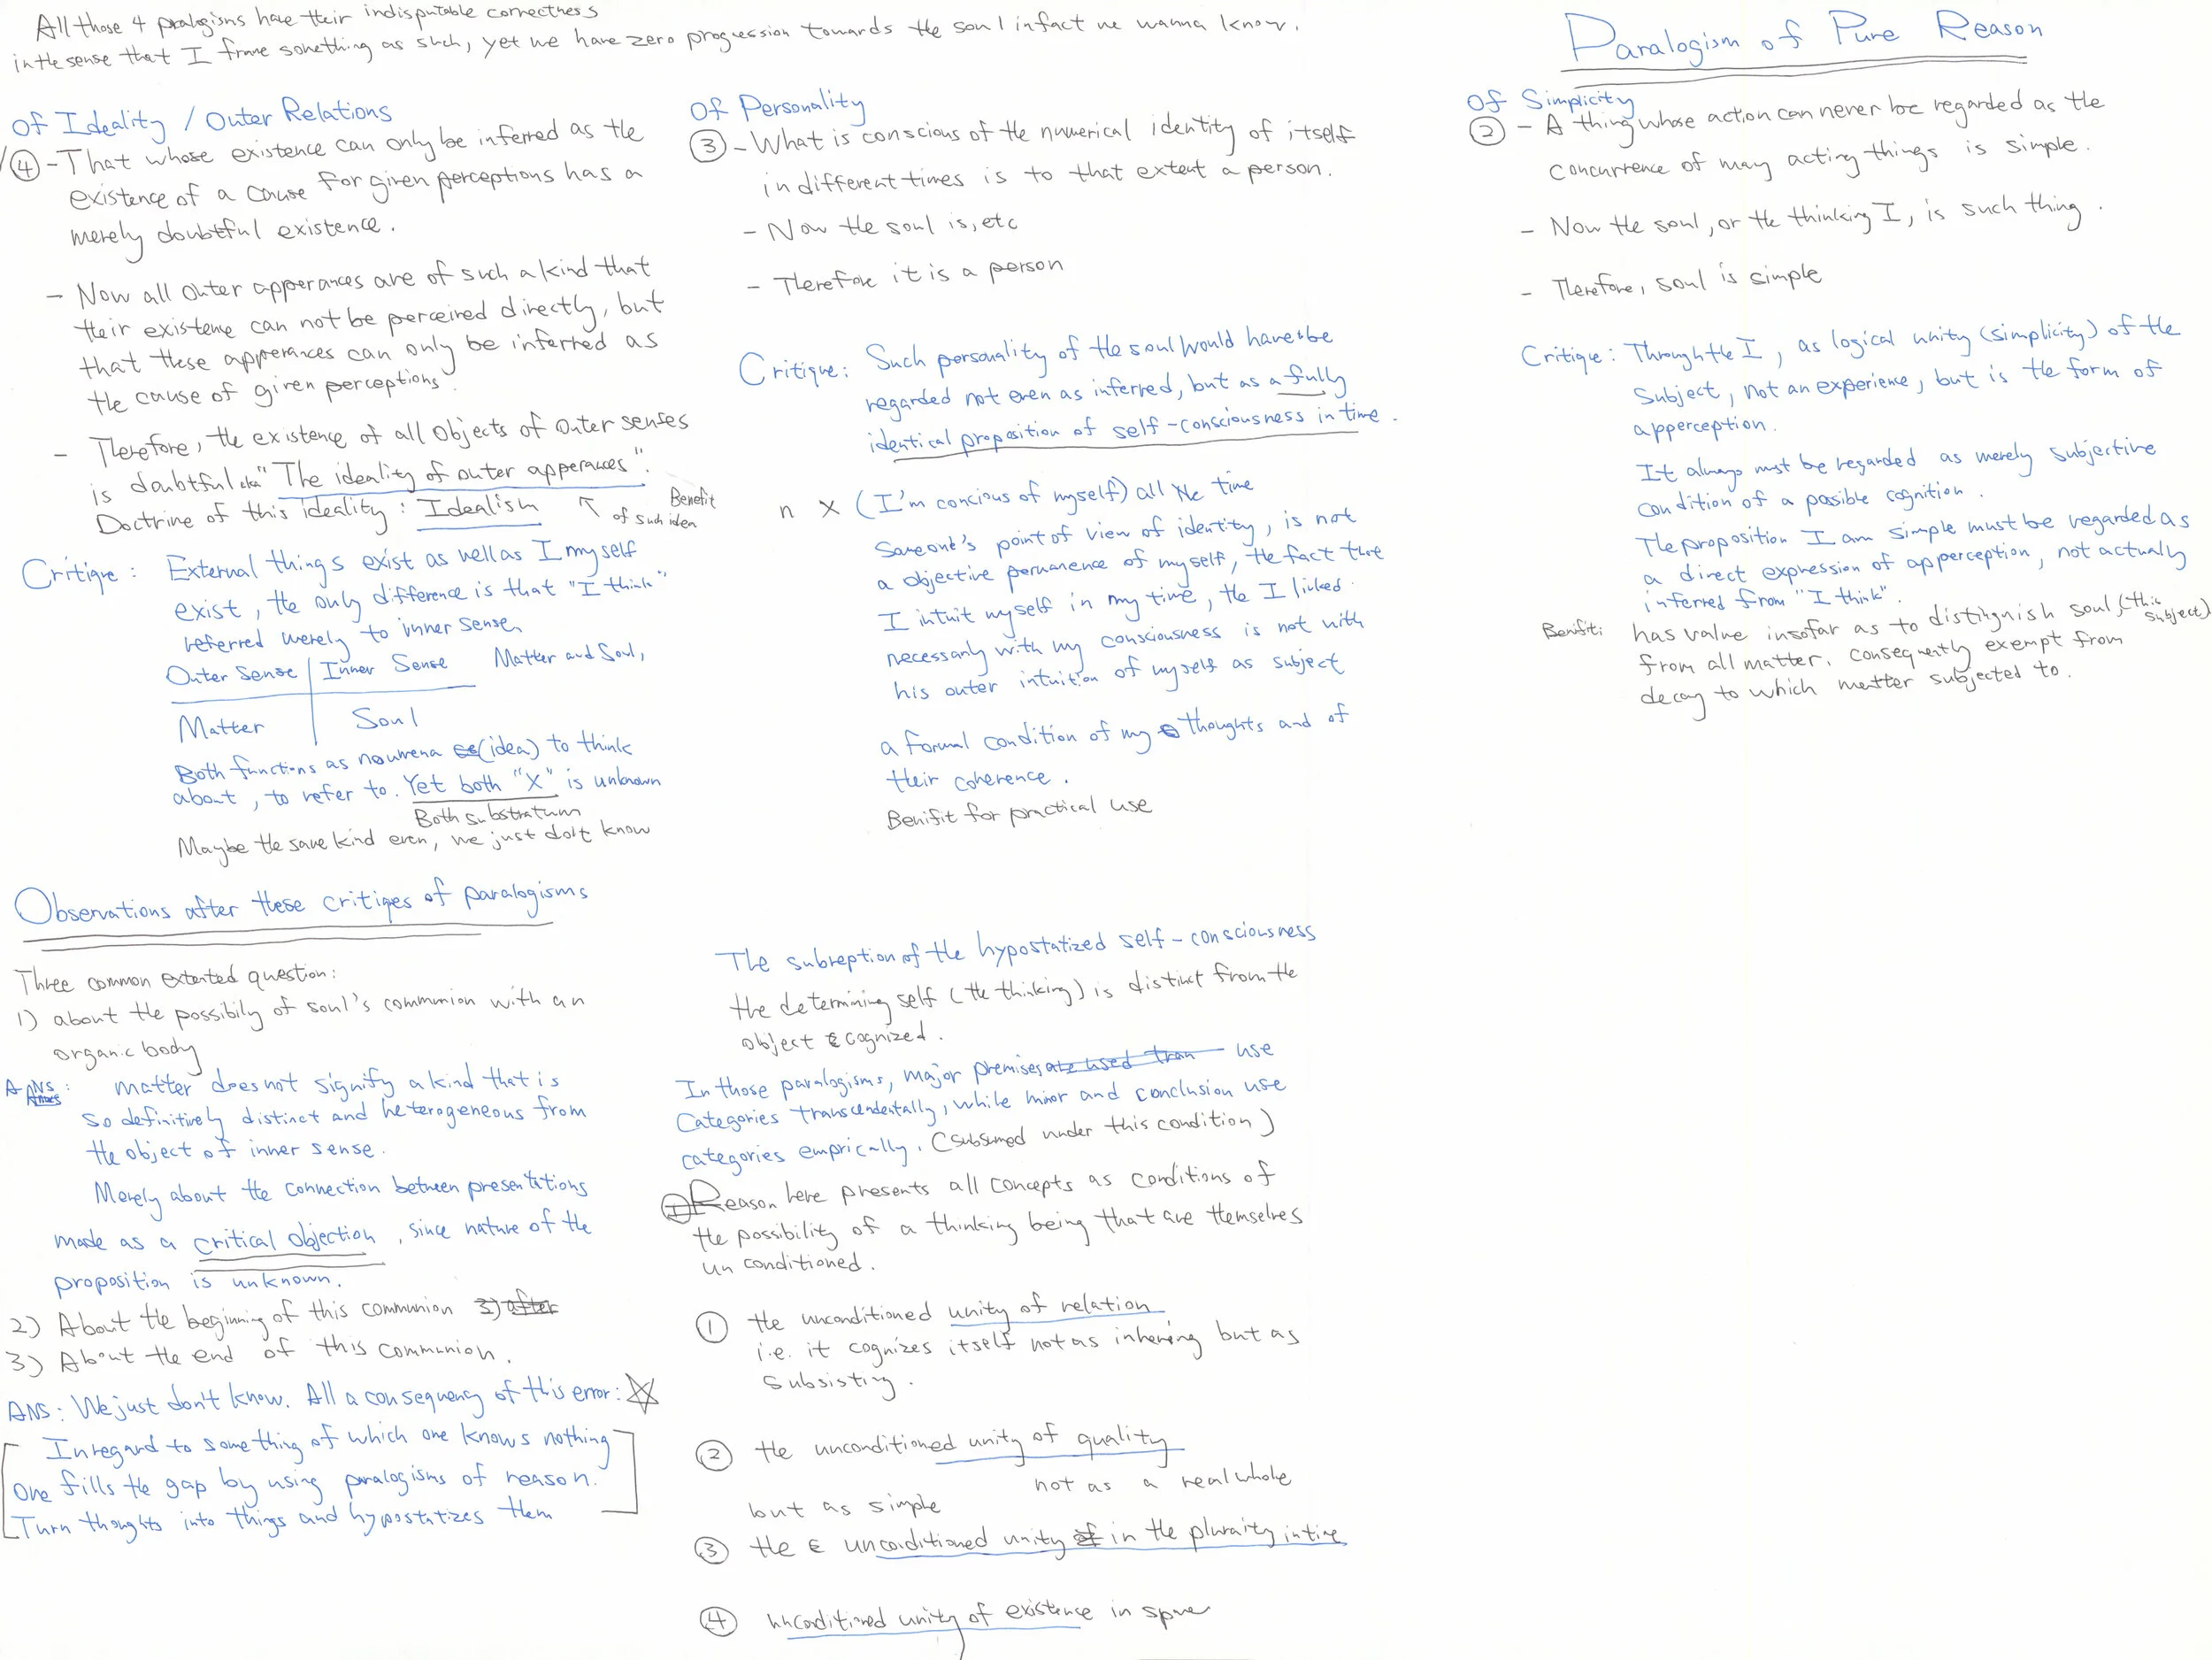 All those 4 pralogisms have their indisputable correctness
in the sense that I frame something as such, yet we have zero progression towards the soul infact we wanna know.
Paralogism of Pure Reason
Of Ideality / Outer Relations
④ - That whose existence can only be inferred as the
existence of a cause for given perceptions has a
merely doubtful existence.
- Now all outer apperances are of such a kind that
their existence can not be perceived directly, but
that these apperances can only be inferred as
the cause of given perceptions.
- Therefore, the existence of all objects of outer senses
is doubtful aka "The ideality of outer apperances".
Doctrine of this ideality: Idealism
Benefit
of such idea
Critique: External things exist as well as I myself
exist, the only difference is that "I think"
referred merely to inner sense,
Outer Sense | Inner Sense Matter and Soul,
Matter Soul
Both functions as noumena (idea) to think
about, to refer to. Yet both "X" is unknown
Both substratum
Maybe the same kind even, we just don't know
Of Personality
③ - What is conscious of the numerical identity of itself
in different times is to that extent a person.
- Now the soul is, etc
- Therefore it is a person
Critique: Such personality of the soul would have to be
regarded not even as inferred, but as a fully
identical proposition of self-consciousness in time.
n × (I'm concious of myself) all the time
Someone's point of view of identity, is not
a objective permanence of myself, the fact that
I intuit myself in my time, the I linked
necessarily with my consciousness is not with
his outer intuition of myself as subject
a formal condition of my thoughts and of
their coherence.
Benifit for practical use
Of Simplicity
② - A thing whose action can never be regarded as the
concurrence of many acting things is simple.
- Now the soul, or the thinking I, is such thing.
- Therefore, soul is simple
Critique: Through the I, as logical unity (simplicity) of the
Subject, not an experience, but is the form of
apperception.
It always must be regarded as merely subjective
condition of a possible cognition.
The proposition I am simple must be regarded as
a direct expression of apperception, not actually
inferred from "I think".
Benifit: has value insofar as to distinguish soul, (this subject)
from all matter. consequently exempt from
decay to which matter subjected to.
Observations after these critiqes of paralogisms
Three common extented question:
1) about the possibily of soul's communion with an
organic body
ANS: matter does not signify a kind that is
so definitively distinct and heterogeneous from
the object of inner sense.
Merely about the connection between presentations
made as a critical objection, since nature of the
proposition is unknown.
2) About the beginning of this communion 3) after
3) About the end of this communion.
ANS: We just don't know. All a consequency of this error: ☆
[In regard to something of which one knows nothing
one fills the gap by using paralogisms of reason.
Turn thoughts into things and hypostatizes them]
The subreption of the hypostatized self-consciousness
the determining self (the thinking) is distinct from the
object cognized.
In those paralogisms, major premises are used tran use
Categories transcendentally, while minor and conclusion use
categories emprically. (subsumed under this condition)
Reason here presents all concepts as conditions of
the possibility of a thinking being that are themselves
unconditioned.
① the unconditioned unity of relation
i.e. it cognizes itself not as inhering but as
subsisting.
② the unconditioned unity of quality
not as a real whole
but as simple
③ the unconditioned unity of in the pluraity in time
④ unconditioned unity of existence in space